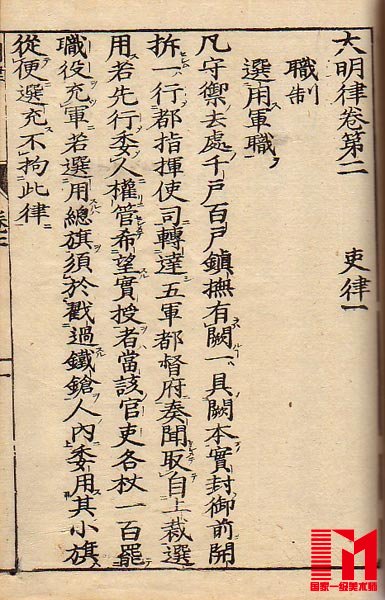 大明律卷第二　吏律一
職制
選用軍職
凡守禦去處千戶百戶鎮撫有闕一具闕本實封御前開
拆一行都指揮使司轉達五軍都督府奏聞取自上裁選
用若先行委人權管希望實授者當該官吏各杖一百罷
職役充軍若選用總旗須於戳過鐵鎗人內委用其小旗
從便選充不拘此律
國家一级美术师